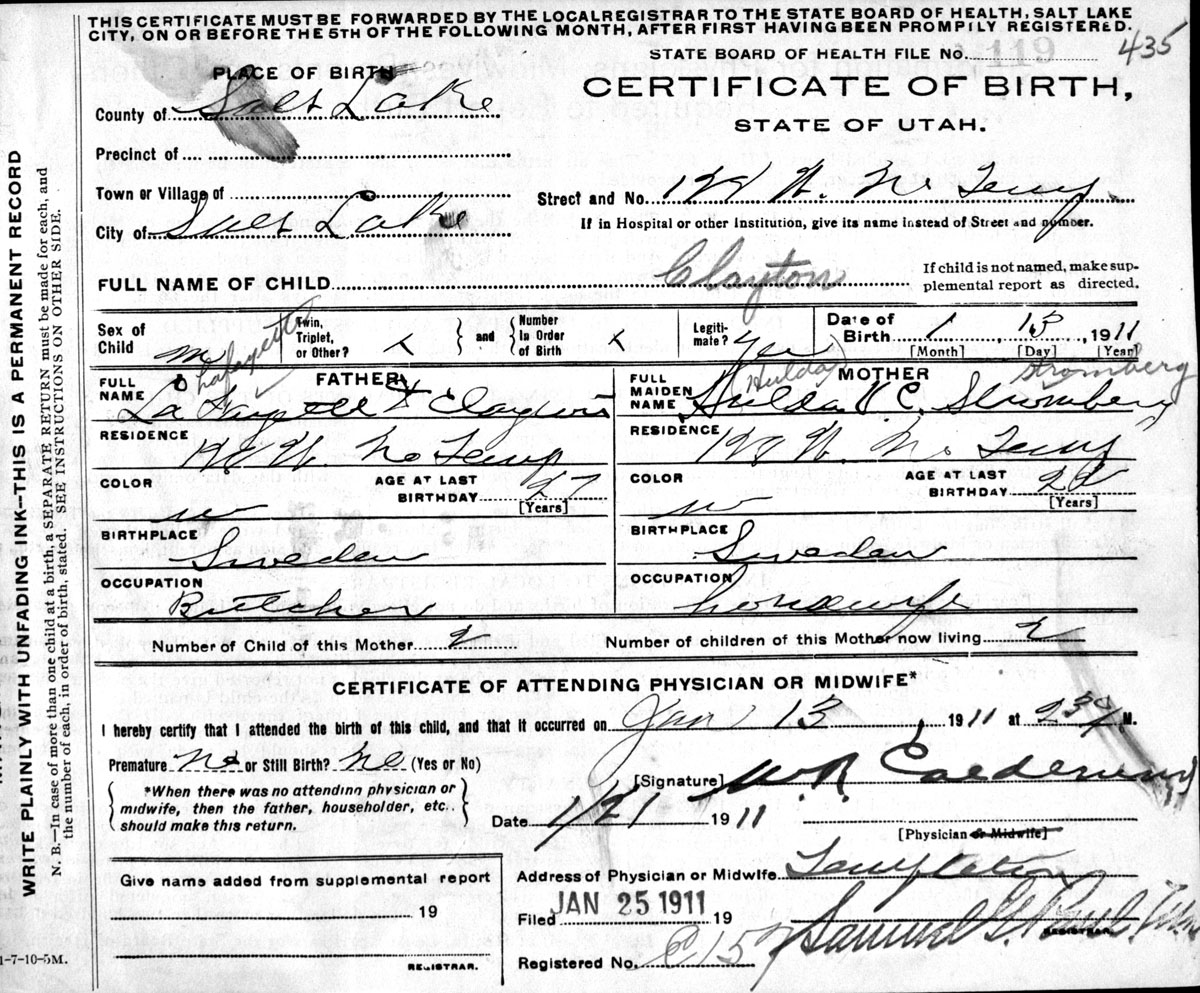 THIS CERTIFICATE MUST BE FORWARDED BY THE LOCALREGISTRAR TO THE STATE BOARD OF HEALTH, SALT LAKE
CITY, ON OR BEFORE THE 5TH OF THE FOLLOWING MONTH, AFTER FIRST HAVING BEEN PROMPILY REGISTERED.
435
STATE BOARD OF HEALTH FILE No. 119
PLACE OF BIRTH
CERTIFICATE OF BIRTH,
STATE OF UTAH.
County of Salt Lake
Precinct of
Town or Village of
Street and No.
City of Salt Lake
If in Hospital or other Institution, give its name instead of Street and number.
FULL NAME OF CHILD Clayton
If child is not named, make sup-
plemental report as directed.
Sex of Child m
Twin, Triplet, or Other?
and
Number In Order of Birth
Legiti-mate? Yes
Date of Birth 1 13 1911
[Month] [Day] [Year]
FATHER
Lafayette
FULL NAME La Fayett Clayton
RESIDENCE
COLOR w
AGE AT LAST BIRTHDAY 27
[Years]
BIRTHPLACE Sweden
OCCUPATION Butcher
MOTHER
(Hulda) Stromberg
FULL MAIDEN NAME Hulda V C. Stromberg
RESIDENCE
COLOR w
AGE AT LAST BIRTHDAY
[Years]
BIRTHPLACE Sweden
OCCUPATION housewife
Number of Child of this Mother 2
Number of children of this Mother now living 2
CERTIFICATE OF ATTENDING PHYSICIAN OR MIDWIFE*
I hereby certify that I attended the birth of this child, and that it occurred on Jan 13, 1911 at 2 30 M.
Premature No or Still Birth? No (Yes or No)
*When there was no attending physician or
midwife, then the father, householder, etc.
should make this return.
[Signature] W.R.
Date 1/21 1911
[Physician or Midwife]
Give name added from supplemental report
19
REGISTRAR.
Address of Physician or Midwife Templeton
Filed JAN 25 1911 19
Samuel G. Paul
REGISTRAR.
Registered No.
1-7-10-5M.
WRITE PLAINLY WITH UNFADING INK—THIS IS A PERMANENT RECORD
N. B.—In case of more than one child at a birth, a SEPARATE RETURN must be made for each, and
the number of each, in order of birth, stated. SEE INSTRUCTIONS ON OTHER SIDE.